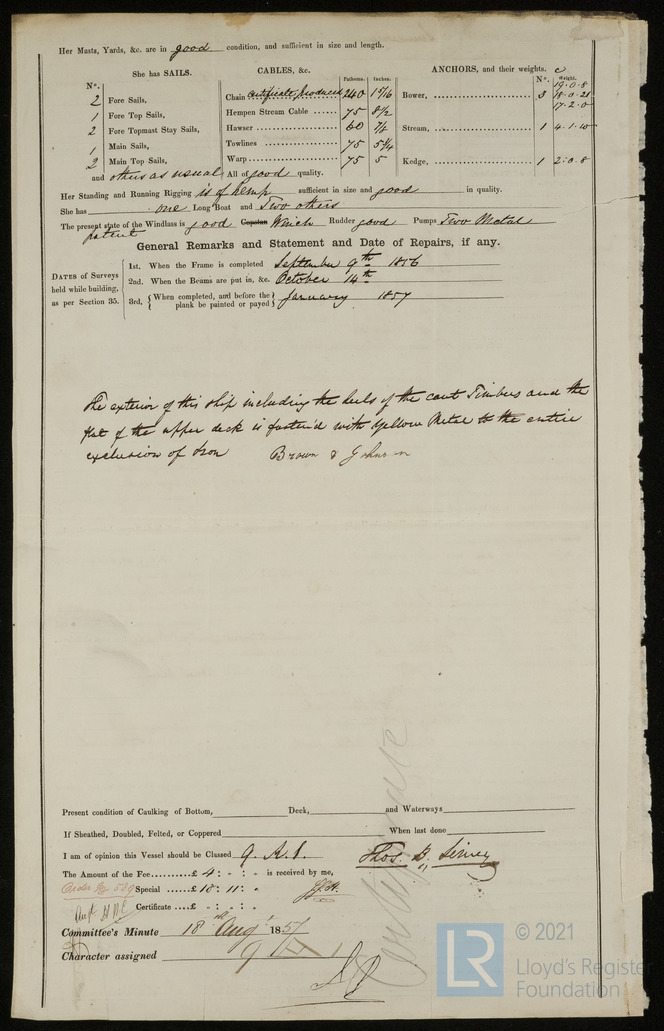 Her Masts, Yards, &c. are in good condition, and sufficient in size and length.
She has SAILS.
CABLES, &c.
Fathoms. Inches.
ANCHORS, and their weights.
Nº. Weight.
Nº.
2 Fore Sails,
1 Fore Top Sails,
2 Fore Topmast Stay Sails,
1 Main Sails,
2 Main Top Sails,
and others as usual
Chain Certificate produced 240 1 5/16
Hempen Stream Cable ...... 75 8 1/2
Hawser 60 7 1/2
Towlines 75 5 1/4
Warp 75 5
All of good quality.
Bower, 3 19.0.8
18.0.21
17.2.0
Stream, 1 4.1.10
Kedge, 1 2.0.8
Her Standing and Running Rigging is of hemp sufficient in size and good in quality.
She has one Long Boat and Two others
The present state of the Windlass is good Capstan Winch Rudder good Pumps Two Metal
patent
General Remarks and Statement and Date of Repairs, if any.
DATES of Surveys held while building, as per Section 35.
1st. When the Frame is completed September 9th 1856
2nd. When the Beams are put in, &c. October 14th
3rd. { When completed, and before the plank be painted or payed } January 1857
The exterior of this ship including the heels of the cant Timbers and the
flat of the upper deck is fasten'd with Yellow Metal to the entire
exclusion of Iron Brown & Johnson
Present condition of Caulking of Bottom, Deck, and Waterways
If Sheathed, Doubled, Felted, or Coppered When last done
I am of opinion this Vessel should be Classed 9. A.1.
Thos. B.
The Amount of the Fee ........... £ 4 : - : - is received by me,
Special ...... £ 10 : 11 : -
Certificate .... £ - : - : -
Committee's Minute 18th Augt 1857
Character assigned 9 A 1
Certificate
LR
© 2021
Lloyd's Register
Foundation